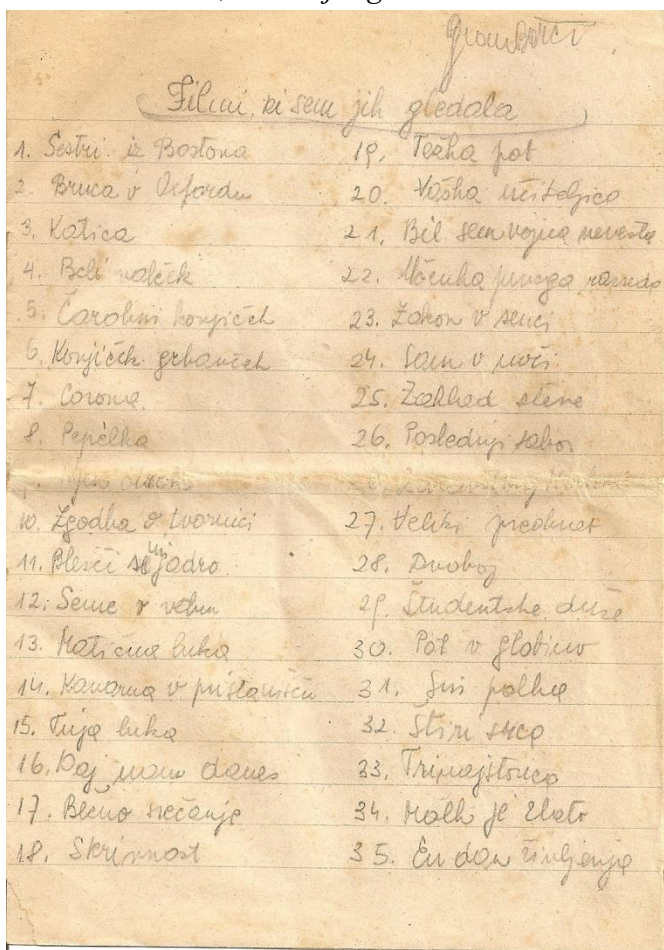 Filmi, ki sem jih gledala
1. Sestri iz Bostona
2. Bruca v Oxfordu
3. Katica
4. Beli valček
5. Čarobni konjiček
6. Konjiček grbavček
7. Corona
8. Pepelka
10. Zgodba o tvornici
11. Blešči se jadro
12. Seme v vetru
13. Matična luka
14. Kavarna v pristanišču
15. Tuja luka
16. Daj nam danes
17. Večno srečanje
18. Skrivnost
19. Težka pot
20. Vaška učiteljica
21. Bil sem vojna nevesta
22. Močuha prvega razreda
23. Zakon v senci
24. Sam v noči
25. Zakhad stene
26. Poslednji tabor
27. Veliki preobrat
28. Dvoboj
29. Študentske duše
30. Pot v globino
31. Sin polka
32. Štiri srca
33. Trinajstorica
34. Molk je zlato
35. En dan življenja